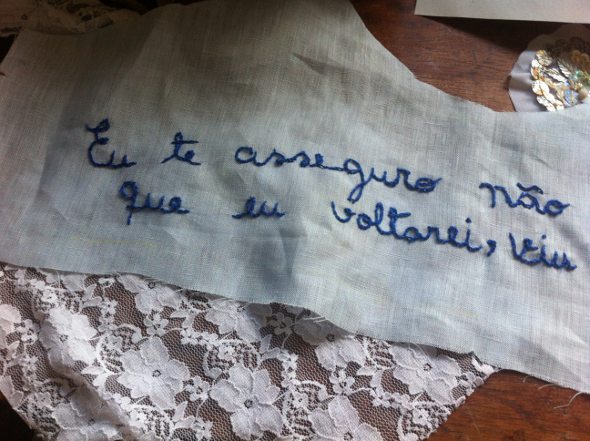 Eu te asseguro não
que eu voltarei, viu